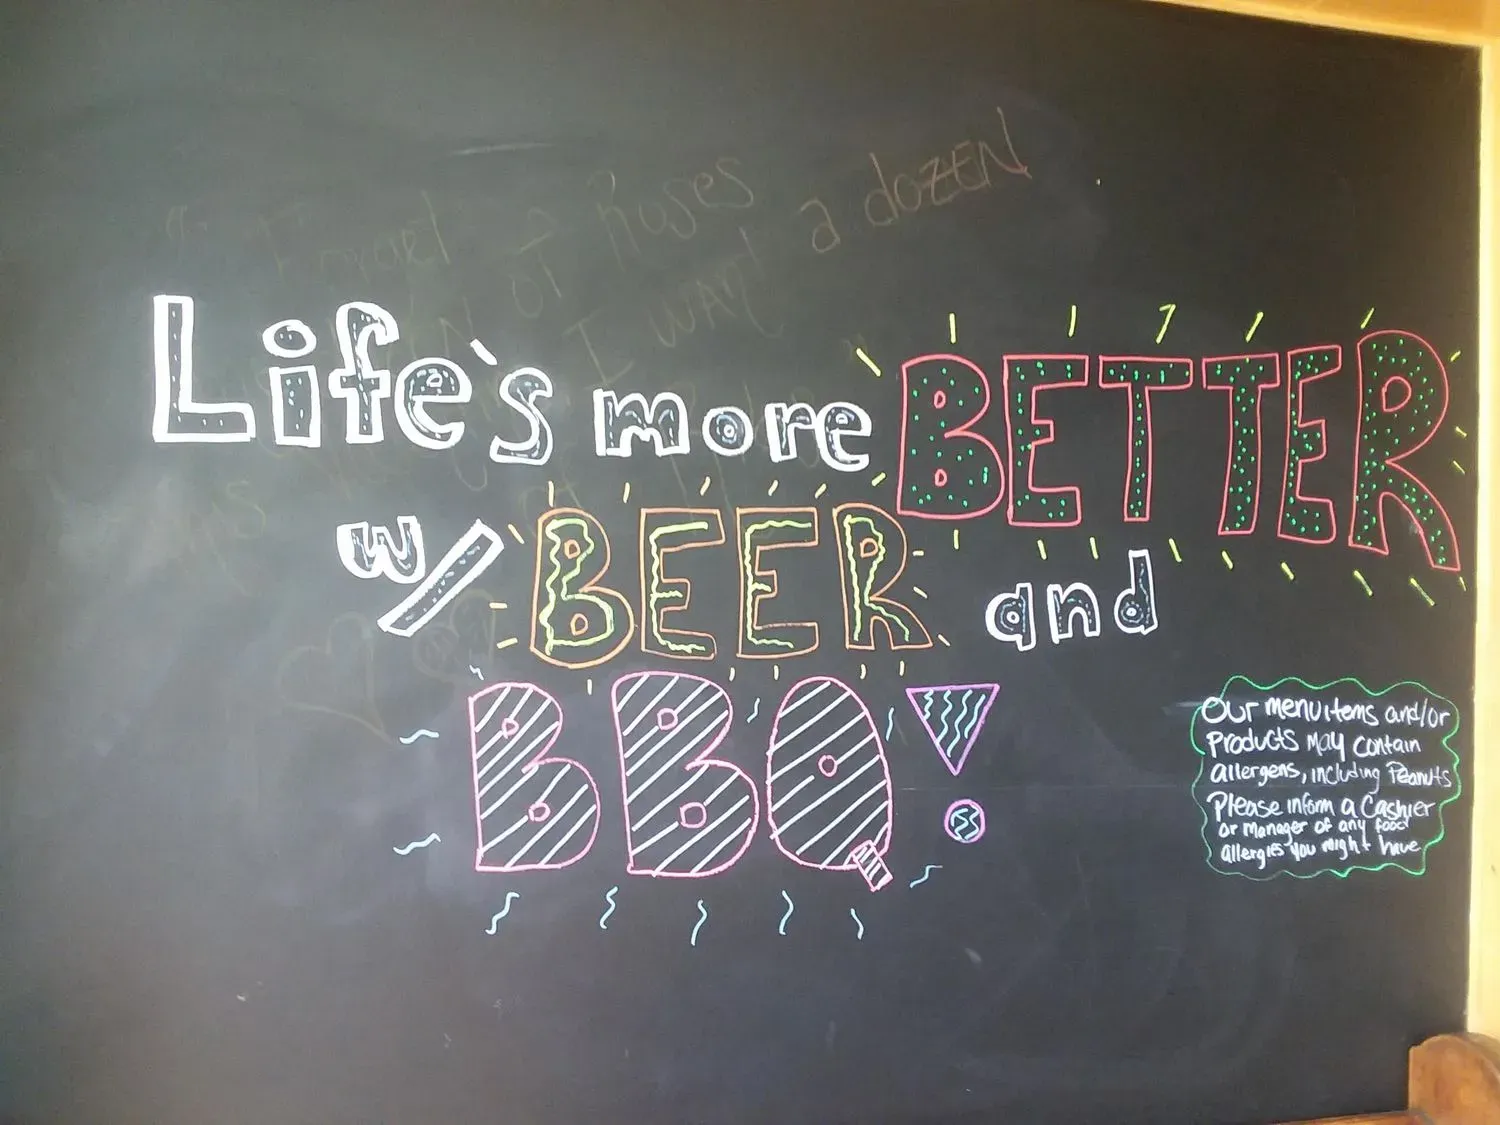 Roses
I want a dozen
Life's more BETTER
w/ BEER and
BBQ!
Our menu items and/or
Products may contain
allergens, including Peanuts
Please inform a Cashier
or manager of any food
allergies you might have